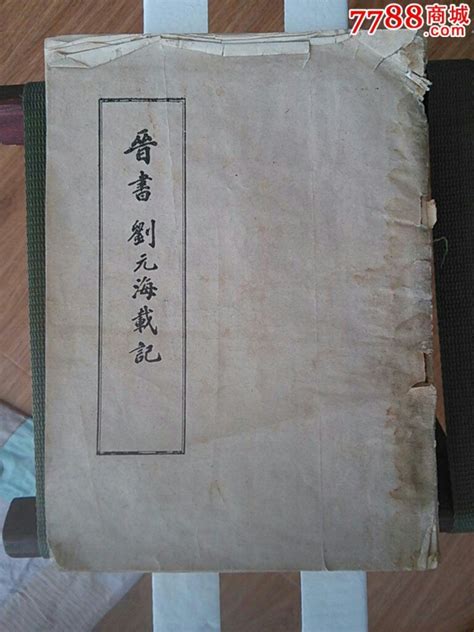 7788商城
晉書 劉元海載記